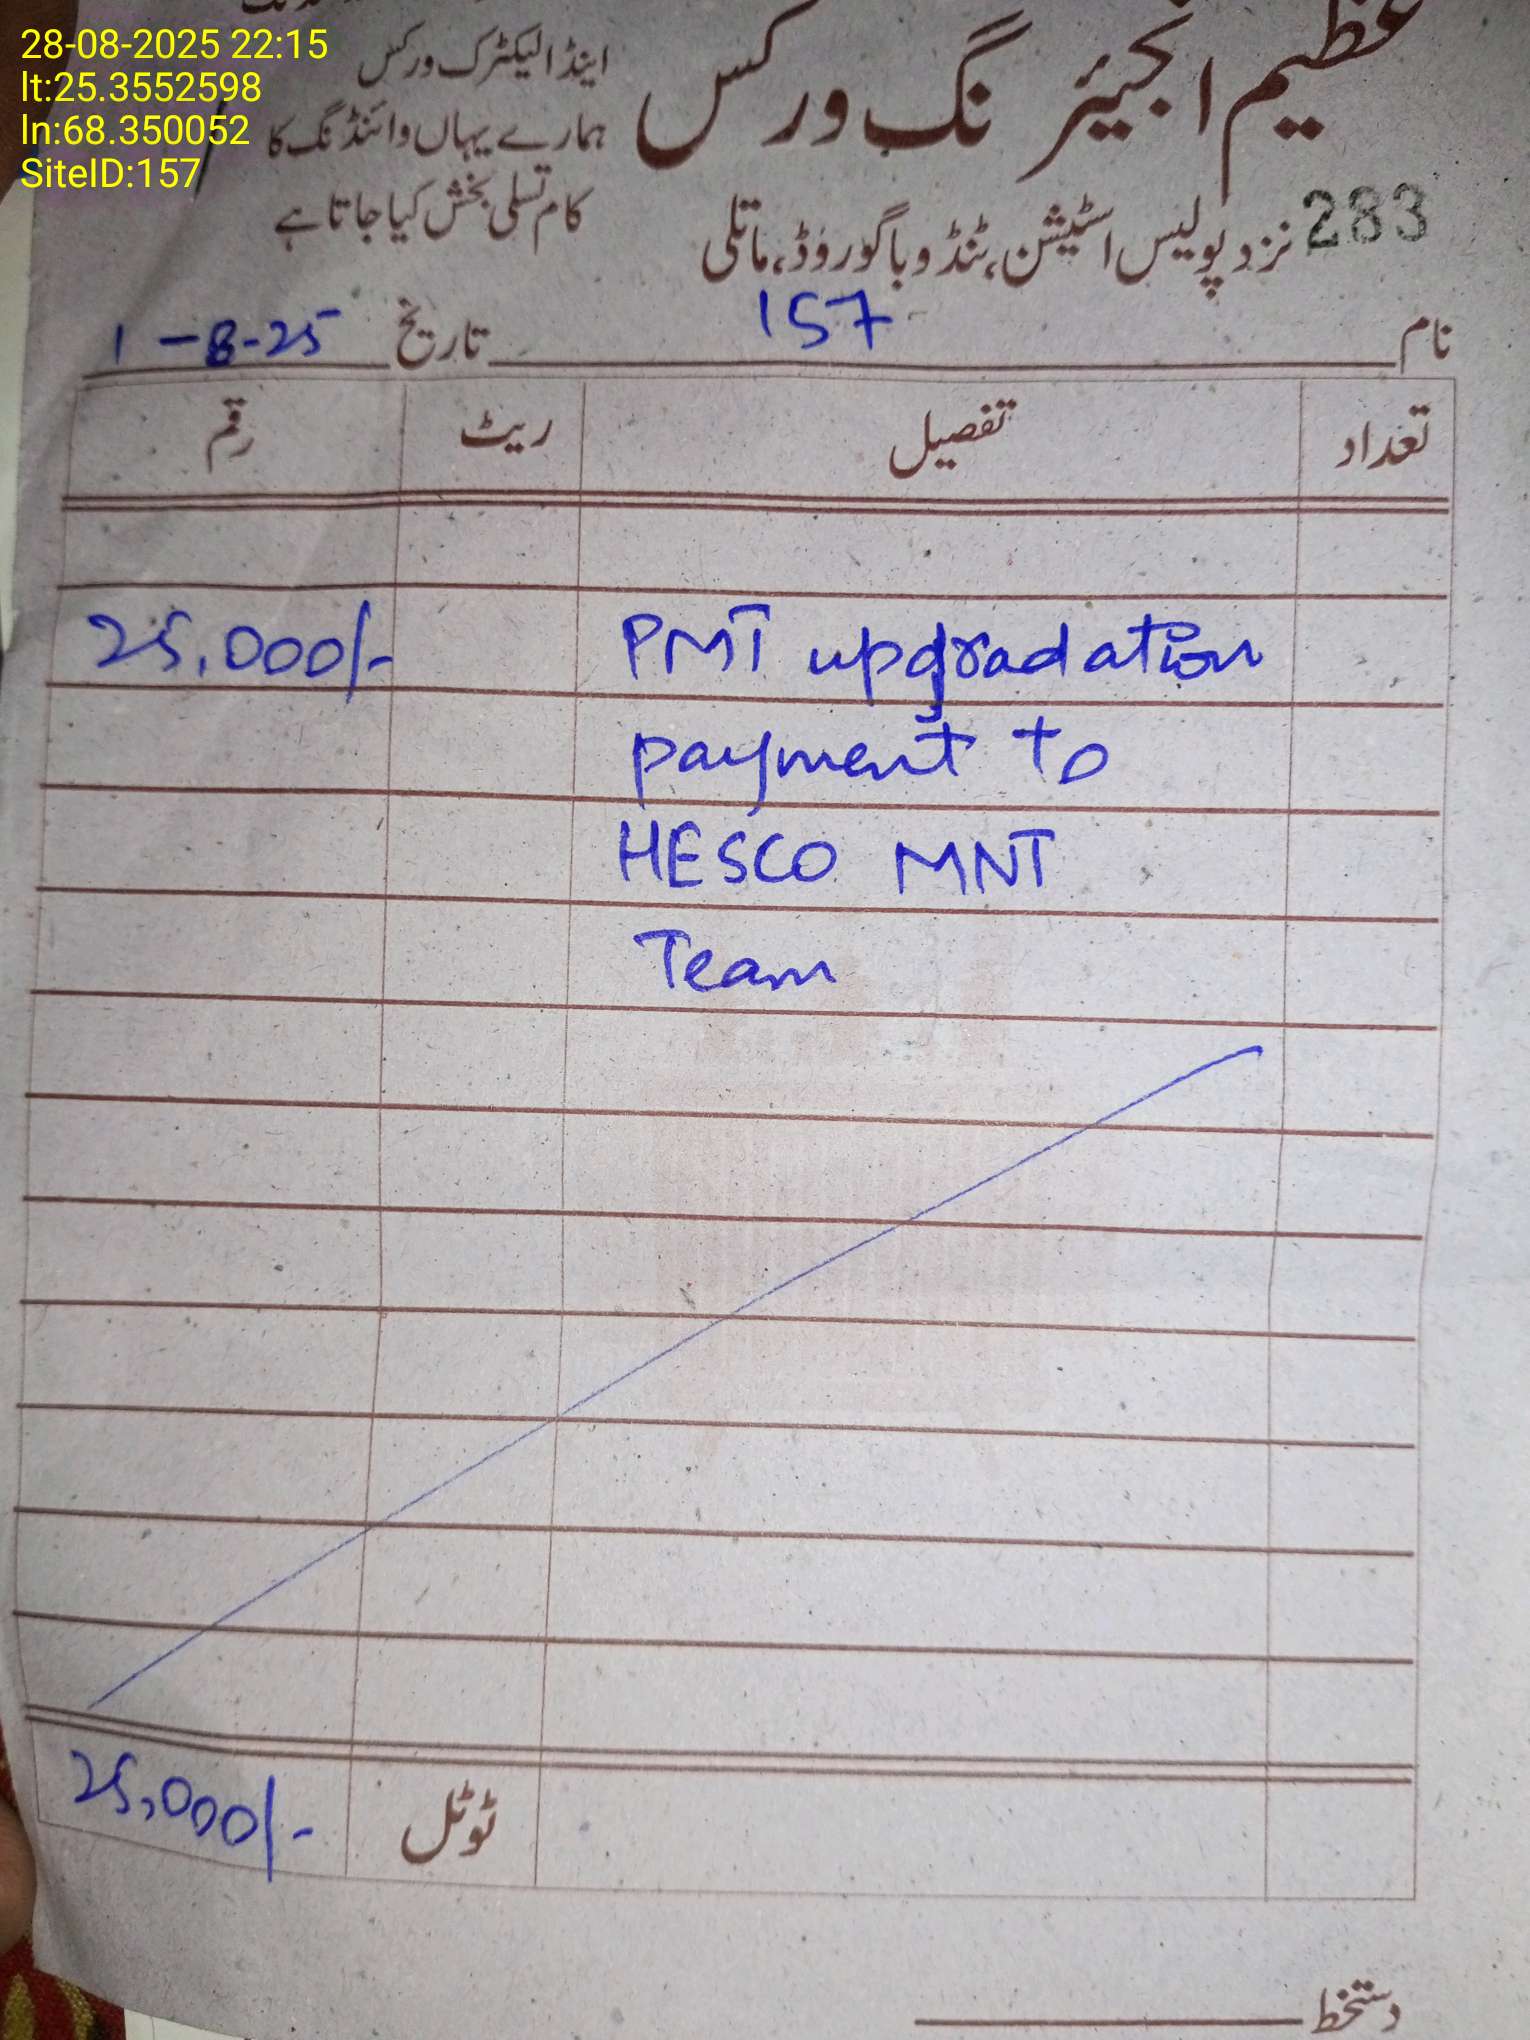 28-08-2025 22:15
lt:25.3552598
ln:68.350052
SiteID:157
عظیم انجینئرنگ ورکس
اینڈ الیکٹرک ورکس
ہمارے یہاں وائنڈنگ کا
کام تسلی بخش کیا جاتا ہے
283
نزد پولیس اسٹیشن، ٹنڈو باگو روڈ، ماتلی
نام 157 تاریخ 1-8-25
تعداد تفصیل ریٹ رقم
PMT upgradation 25,000/-
payment to
HESCO MNT
Team
ٹوٹل 25,000/-
دستخط